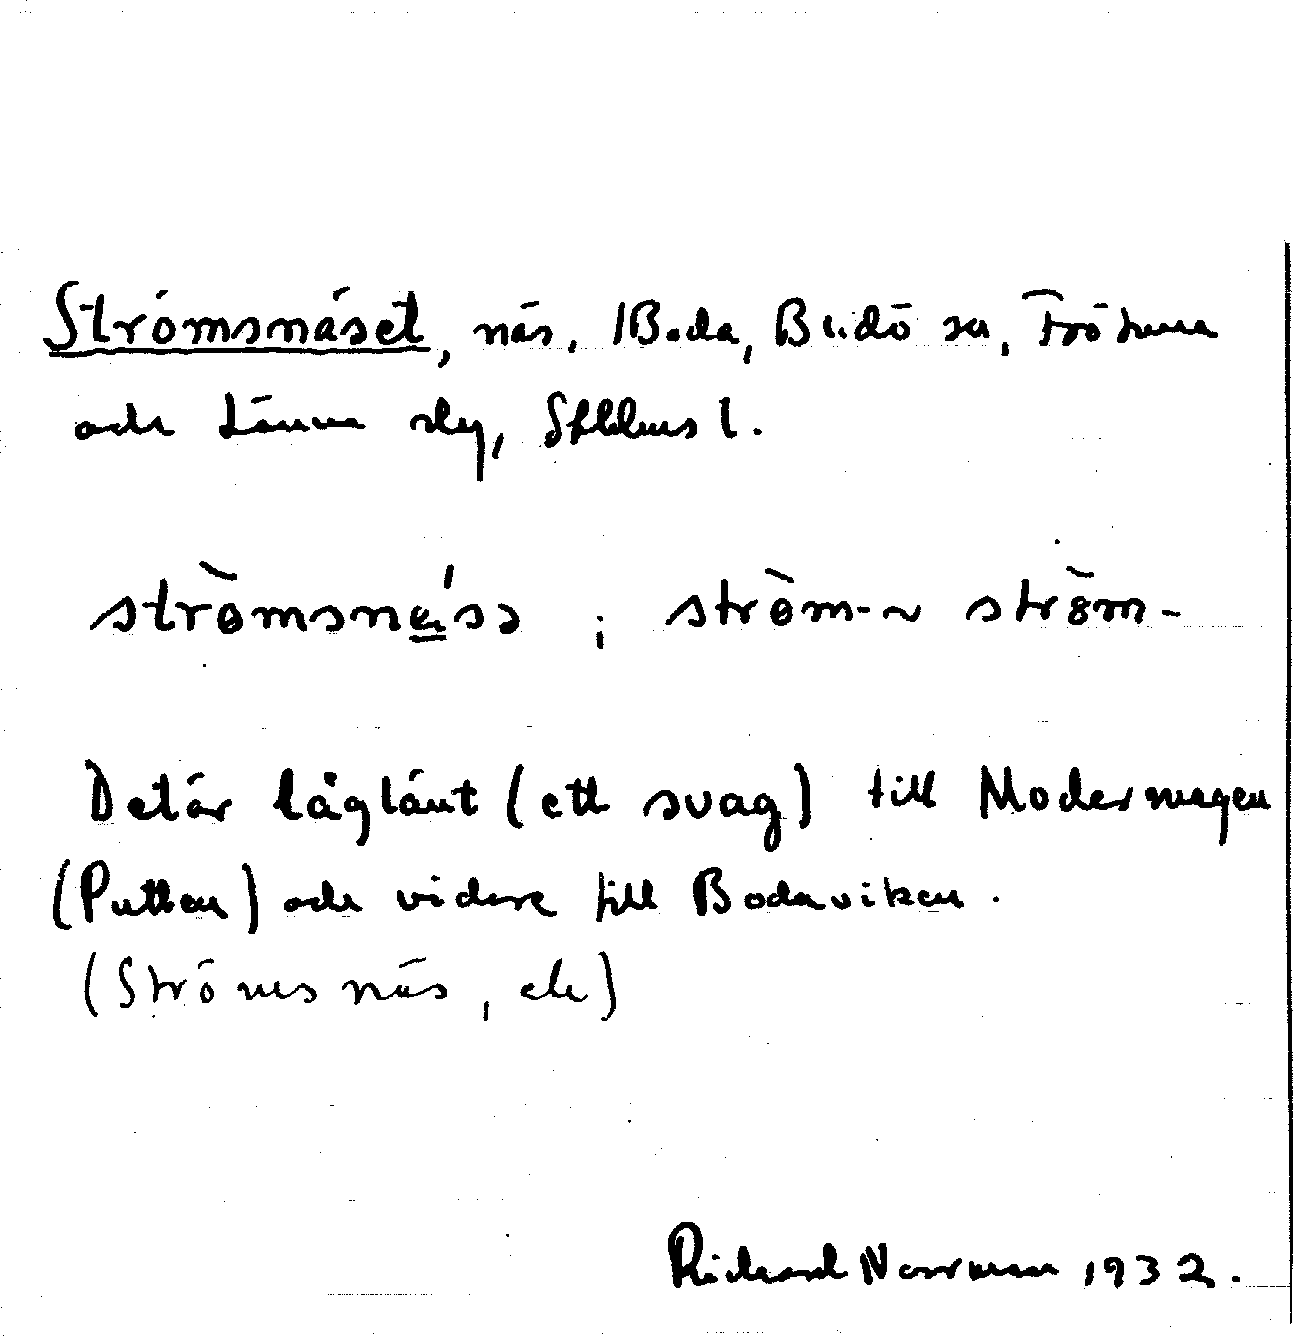 Strömsnäset, näs, 1 Boda, Blidö sn, Frötuna
och Länna slg, Sthlms l.
strömsnä́sə ; ström- ~ ström-
Det är låglänt (ett svag) till Modermagen
(Putten) och vidare till Bodaviken.
(Strömsnäs, ek)
Richard Norrman 1932.